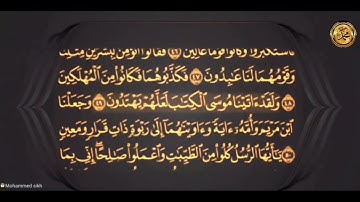 فَٱسْتَكْبَرُوا۟ وَكَانُوا۟ قَوْمًا عَالِينَ ٤٦ فَقَالُوٓا۟ أَنُؤْمِنُ لِبَشَرَيْنِ مِثْلِنَا
وَقَوْمُهُمَا لَنَا عَـٰبِدُونَ ٤٧ فَكَذَّبُوهُمَا فَكَانُوا۟ مِنَ ٱلْمُهْلَكِينَ
٤٨ وَلَقَدْ ءَاتَيْنَا مُوسَى ٱلْكِتَـٰبَ لَعَلَّهُمْ يَهْتَدُونَ ٤٩ وَجَعَلْنَا
ٱبْنَ مَرْيَمَ وَأُمَّهُۥٓ ءَايَةً وَءَاوَيْنَـٰهُمَآ إِلَىٰ رَبْوَةٍ ذَاتِ قَرَارٍ وَمَعِينٍ
٥٠ يَـٰٓأَيُّهَا ٱلرُّسُلُ كُلُوا۟ مِنَ ٱلطَّيِّبَـٰتِ وَٱعْمَلُوا۟ صَـٰلِحًا إِنِّى بِمَا
Mohammed sikh